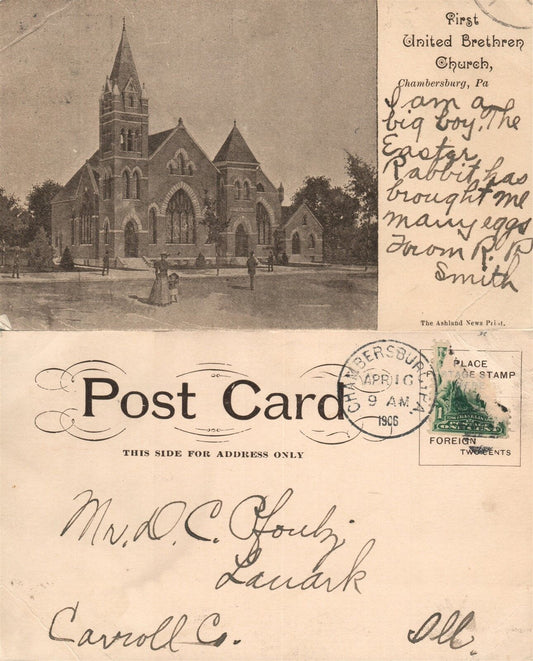 First
United Brethren
Church,
Chambersburg, Pa
I am a
big boy. The
Easter
Rabbit has
brought me
many eggs
From R. R
Smith
The Ashland News Print.
Post Card
THIS SIDE FOR ADDRESS ONLY
CHAMBERSBURG, PA.
APR 16
9 AM
1906
PLACE
STAMP
FOREIGN
TWO CENTS
Mr. D. C.
Lanark
Carroll Co. Ill.